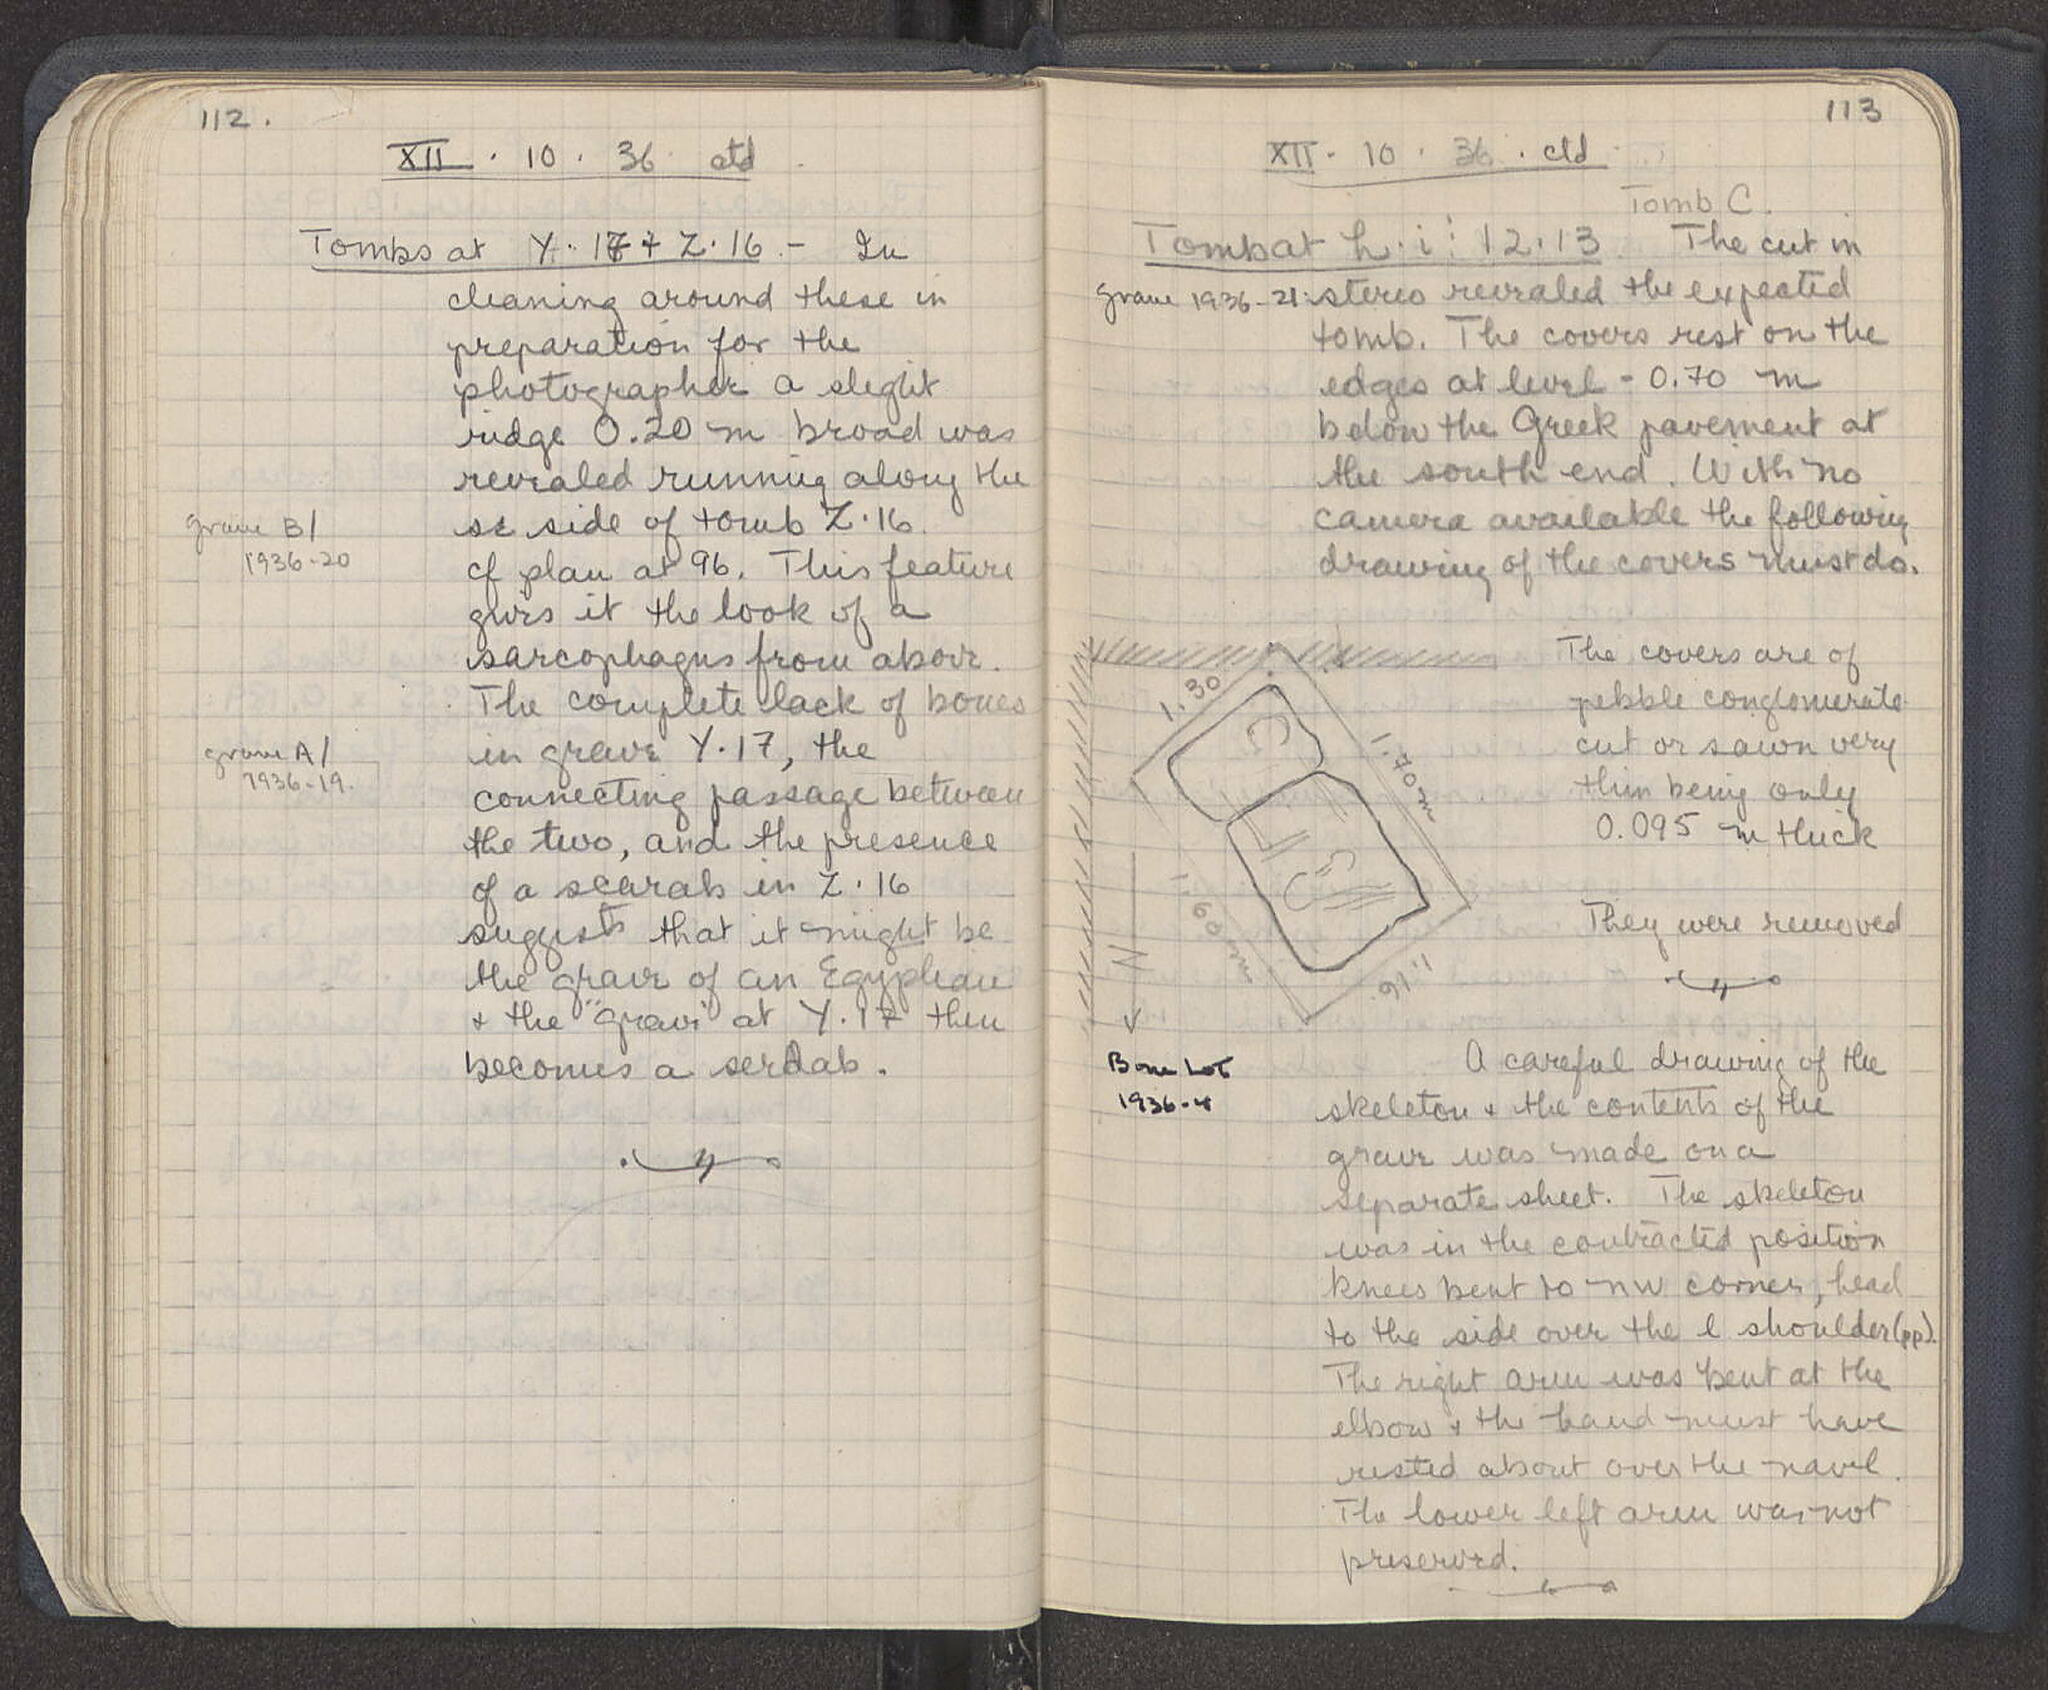 112.
XII . 10 . 36 ctd
Tombs at Y.17 + Z.16 - In
cleaning around these in
preparation for the
photographer a slight
ridge 0.20 m broad was
revealed running along the
grave B/
1936-20
se side of tomb Z.16.
cf plan at 96. This feature
givis it the look of a
sarcophagus from above.
The complete lack of bones
grave A/
1936-19.
in grave Y.17, the
connecting passage between
the two, and the presence
of a scarab in Z.16
suggests that it might be
the grave of an Egyptian
+ the "grave" at Y.17 then
becomes a serdab.
113
XII . 10 . 36 . ctd
Tomb C.
Tomb at h.i: 12.13. The cut in
grave 1936-21: stereo revealed the expected
tomb. The covers rest on the
edges at level - 0.70 m
below the Greek pavement at
the south end. With no
camera available the following
drawing of the covers must do.
1.30
1.70m
1.60m
1.16.
N
The covers are of
pebble conglomerate
cut or sawn very
thin being only
0.095 m thick
They were removed
Bone Lot
1936-4
A careful drawing of the
skeleton + the contents of the
grave was made on a
separate sheet. The skeleton
was in the contracted position
knees bent to NW corner, head
to the side over the l shoulder(pp).
The right arm was bent at the
elbow + the hand must have
rested about over the navel.
The lower left arm was not
preserved.